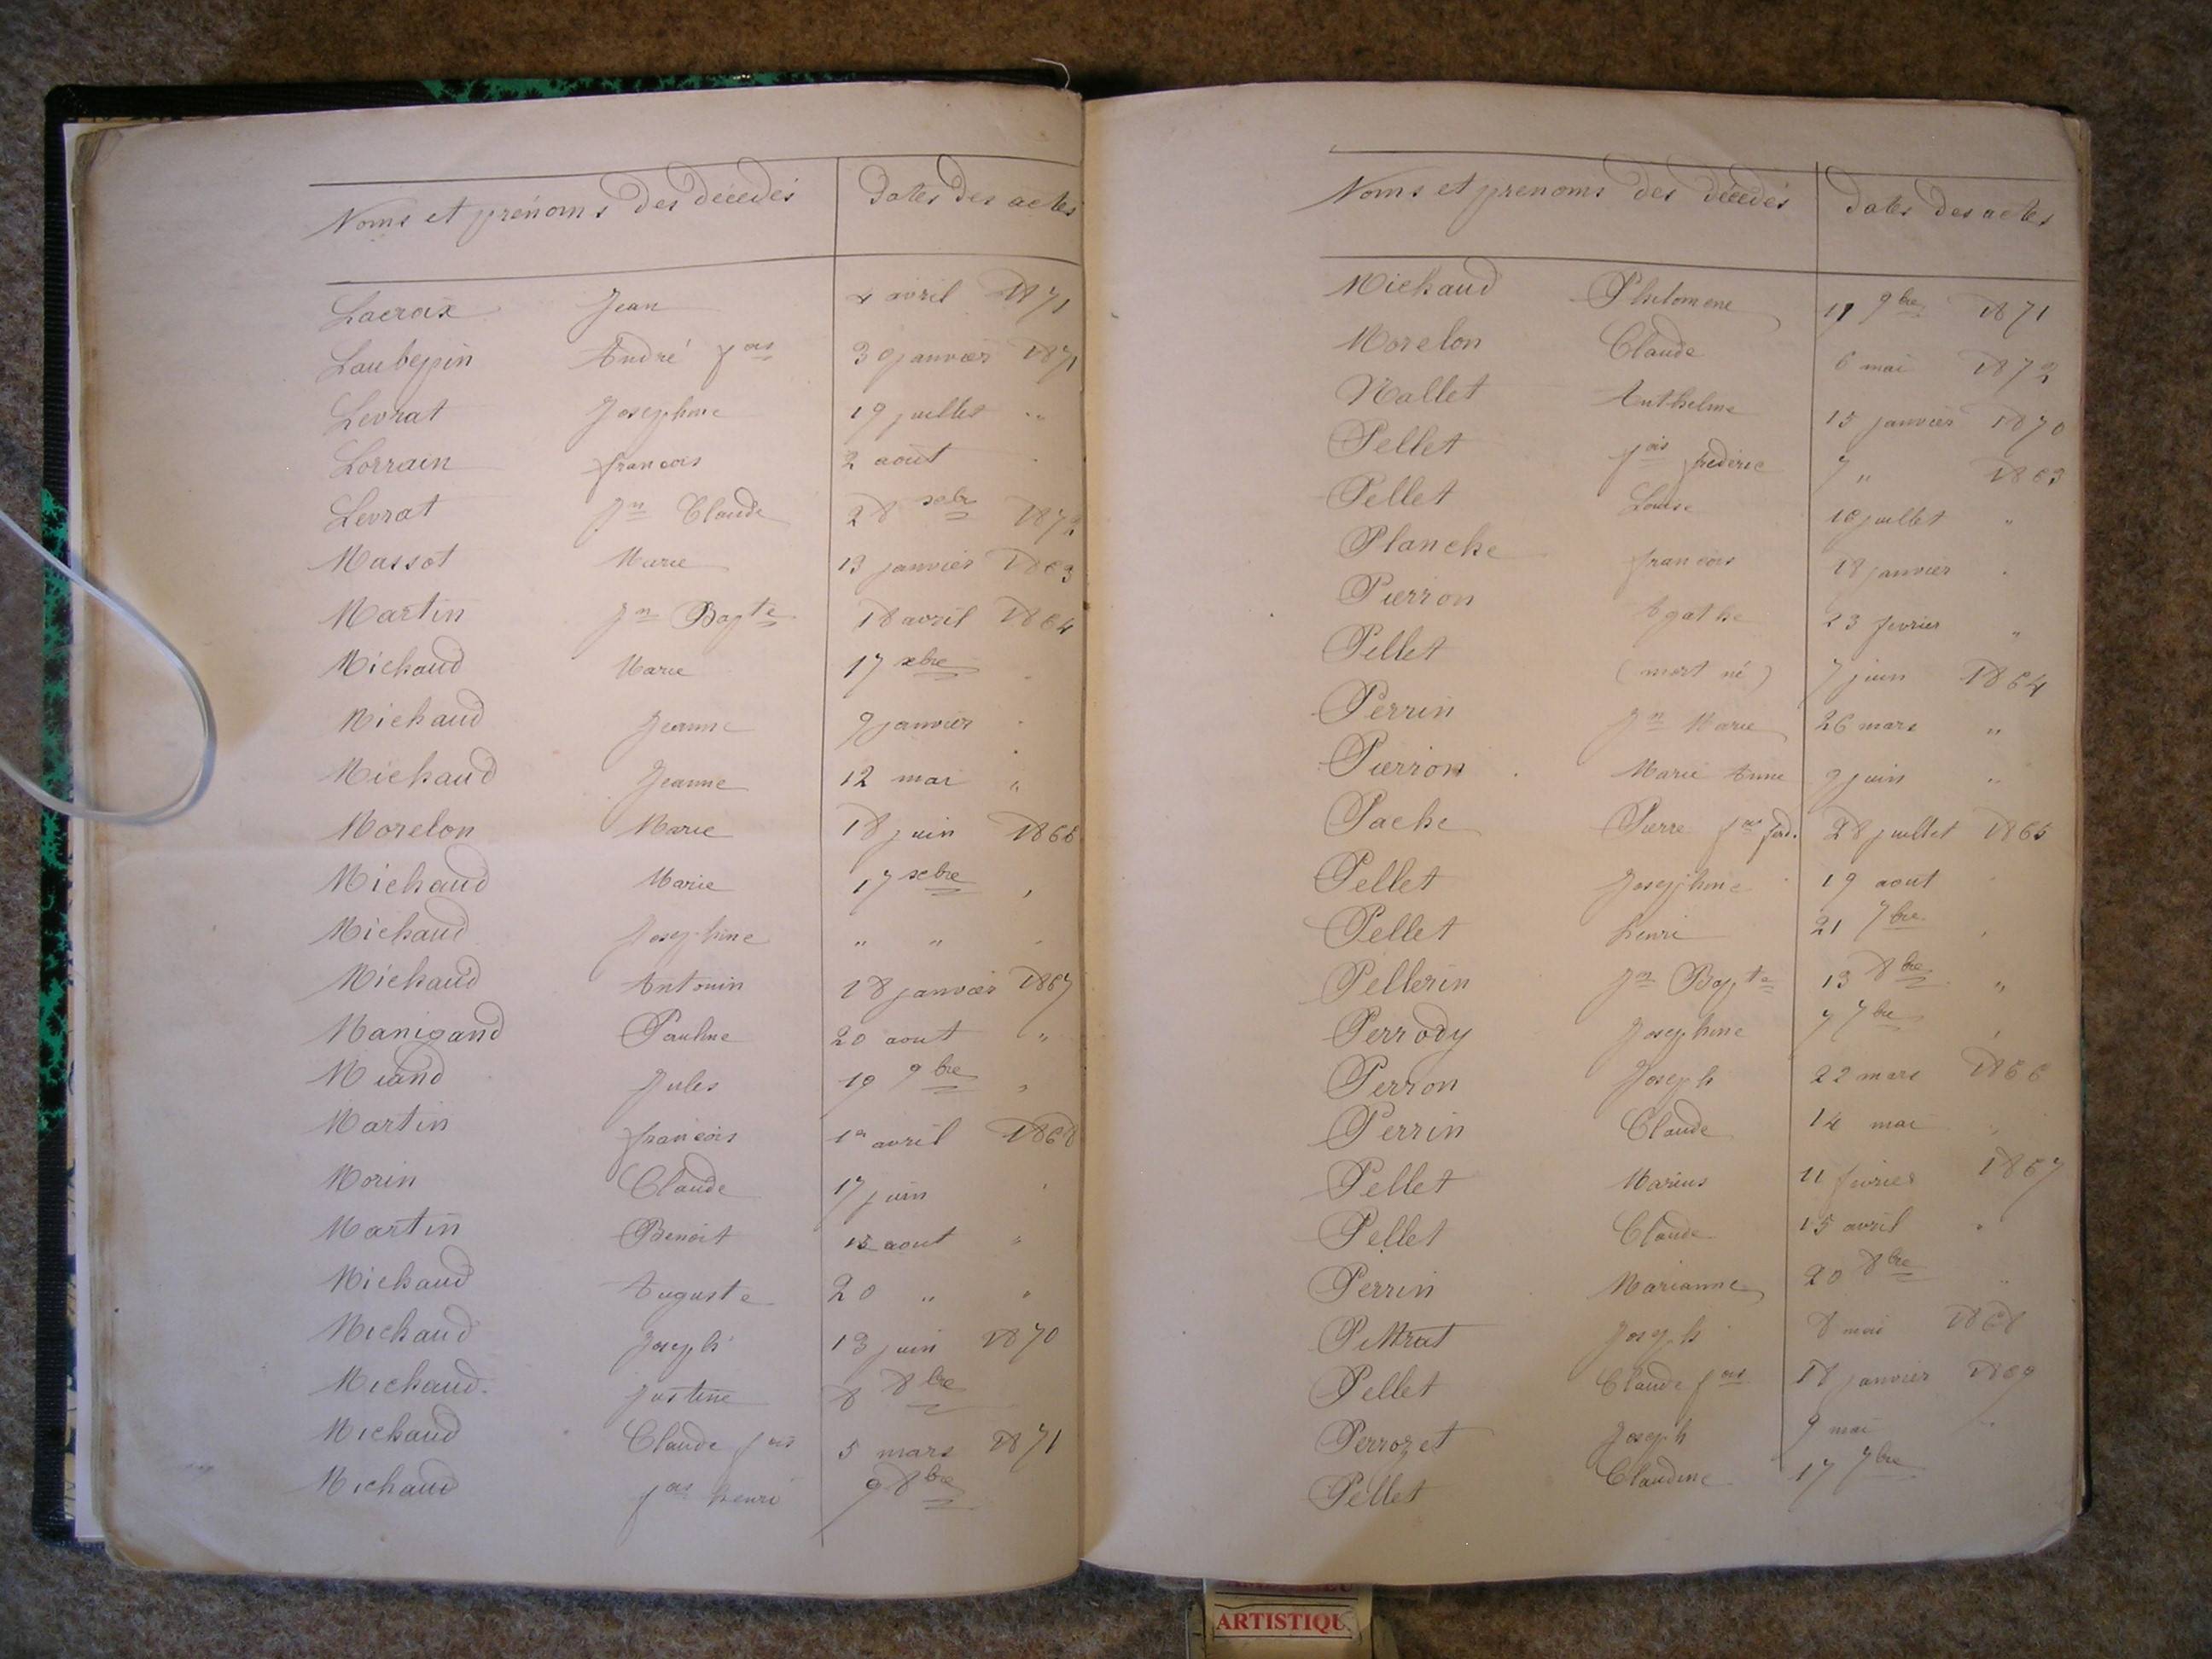 Noms et prénoms des décédés Dates des actes
Lacroix Jean 4 avril 1871
Laubepin André fois 30 janvier 1871
Levrat Josephine 19 juillet "
Lorrain francois 2 aout "
Levrat Jn Claude 28 xbre 1872
Massot Marie 13 janvier 1863
Martin Jn Bapte 18 avril 1864
Michaud Marie 17 xbre "
Michaud Jeanne 9 janvier "
Michaud Jeanne 12 mai "
Morelon Marie 18 juin 1866
Michaud Marie 17 xbre "
Michaud Josephine " " "
Michaud Antonin 18 janvier 1867
Manigand Pauline 20 aout "
Miand Jules 19 9bre "
Martin francois 1er avril 1868
Morin Claude 17 juin "
Martin Benoit 15 aout "
Michaud Auguste 20 " "
Michaud Joseph 13 juin 1870
Michaud Justine 8 8bre
Michaud Claude fois 5 mars 1871
Michaud fois henri 9 8bre
Noms et prenoms des décédés Dates des actes
Michaud Philomene 19 9bre 1871
Morelon Claude 6 mai 1872
Nallet Anthelme 15 janvier 1870
Pellet fois frederic 7 " 1863
Pellet Louise 10 juillet "
Planche francois 18 janvier "
Pierron Agathe 23 fevrier "
Pellet (mort né) 7 juin 1864
Perrin Jn Marie 26 mars "
Pierron Marie Anne 9 juin "
Pache Pierre fois ferd. 28 juillet 1865
Pellet Josephine 19 aout "
Pellet henri 21 7bre "
Pellerin Jn Bapte 13 8bre "
Perrody Josephine 7 7bre "
Perron Joseph 22 mars 1866
Perrin Claude 14 mai "
Pellet Marius 11 fevrier 1867
Pellet Claude 15 avril "
Perrin Marianne 20 8bre "
Joseph 8 mai 1868
Pellet Claude fois 18 janvier 1869
Perrozet Joseph 9 mai "
Pellet Claudine 17 7bre
ARTISTIQU